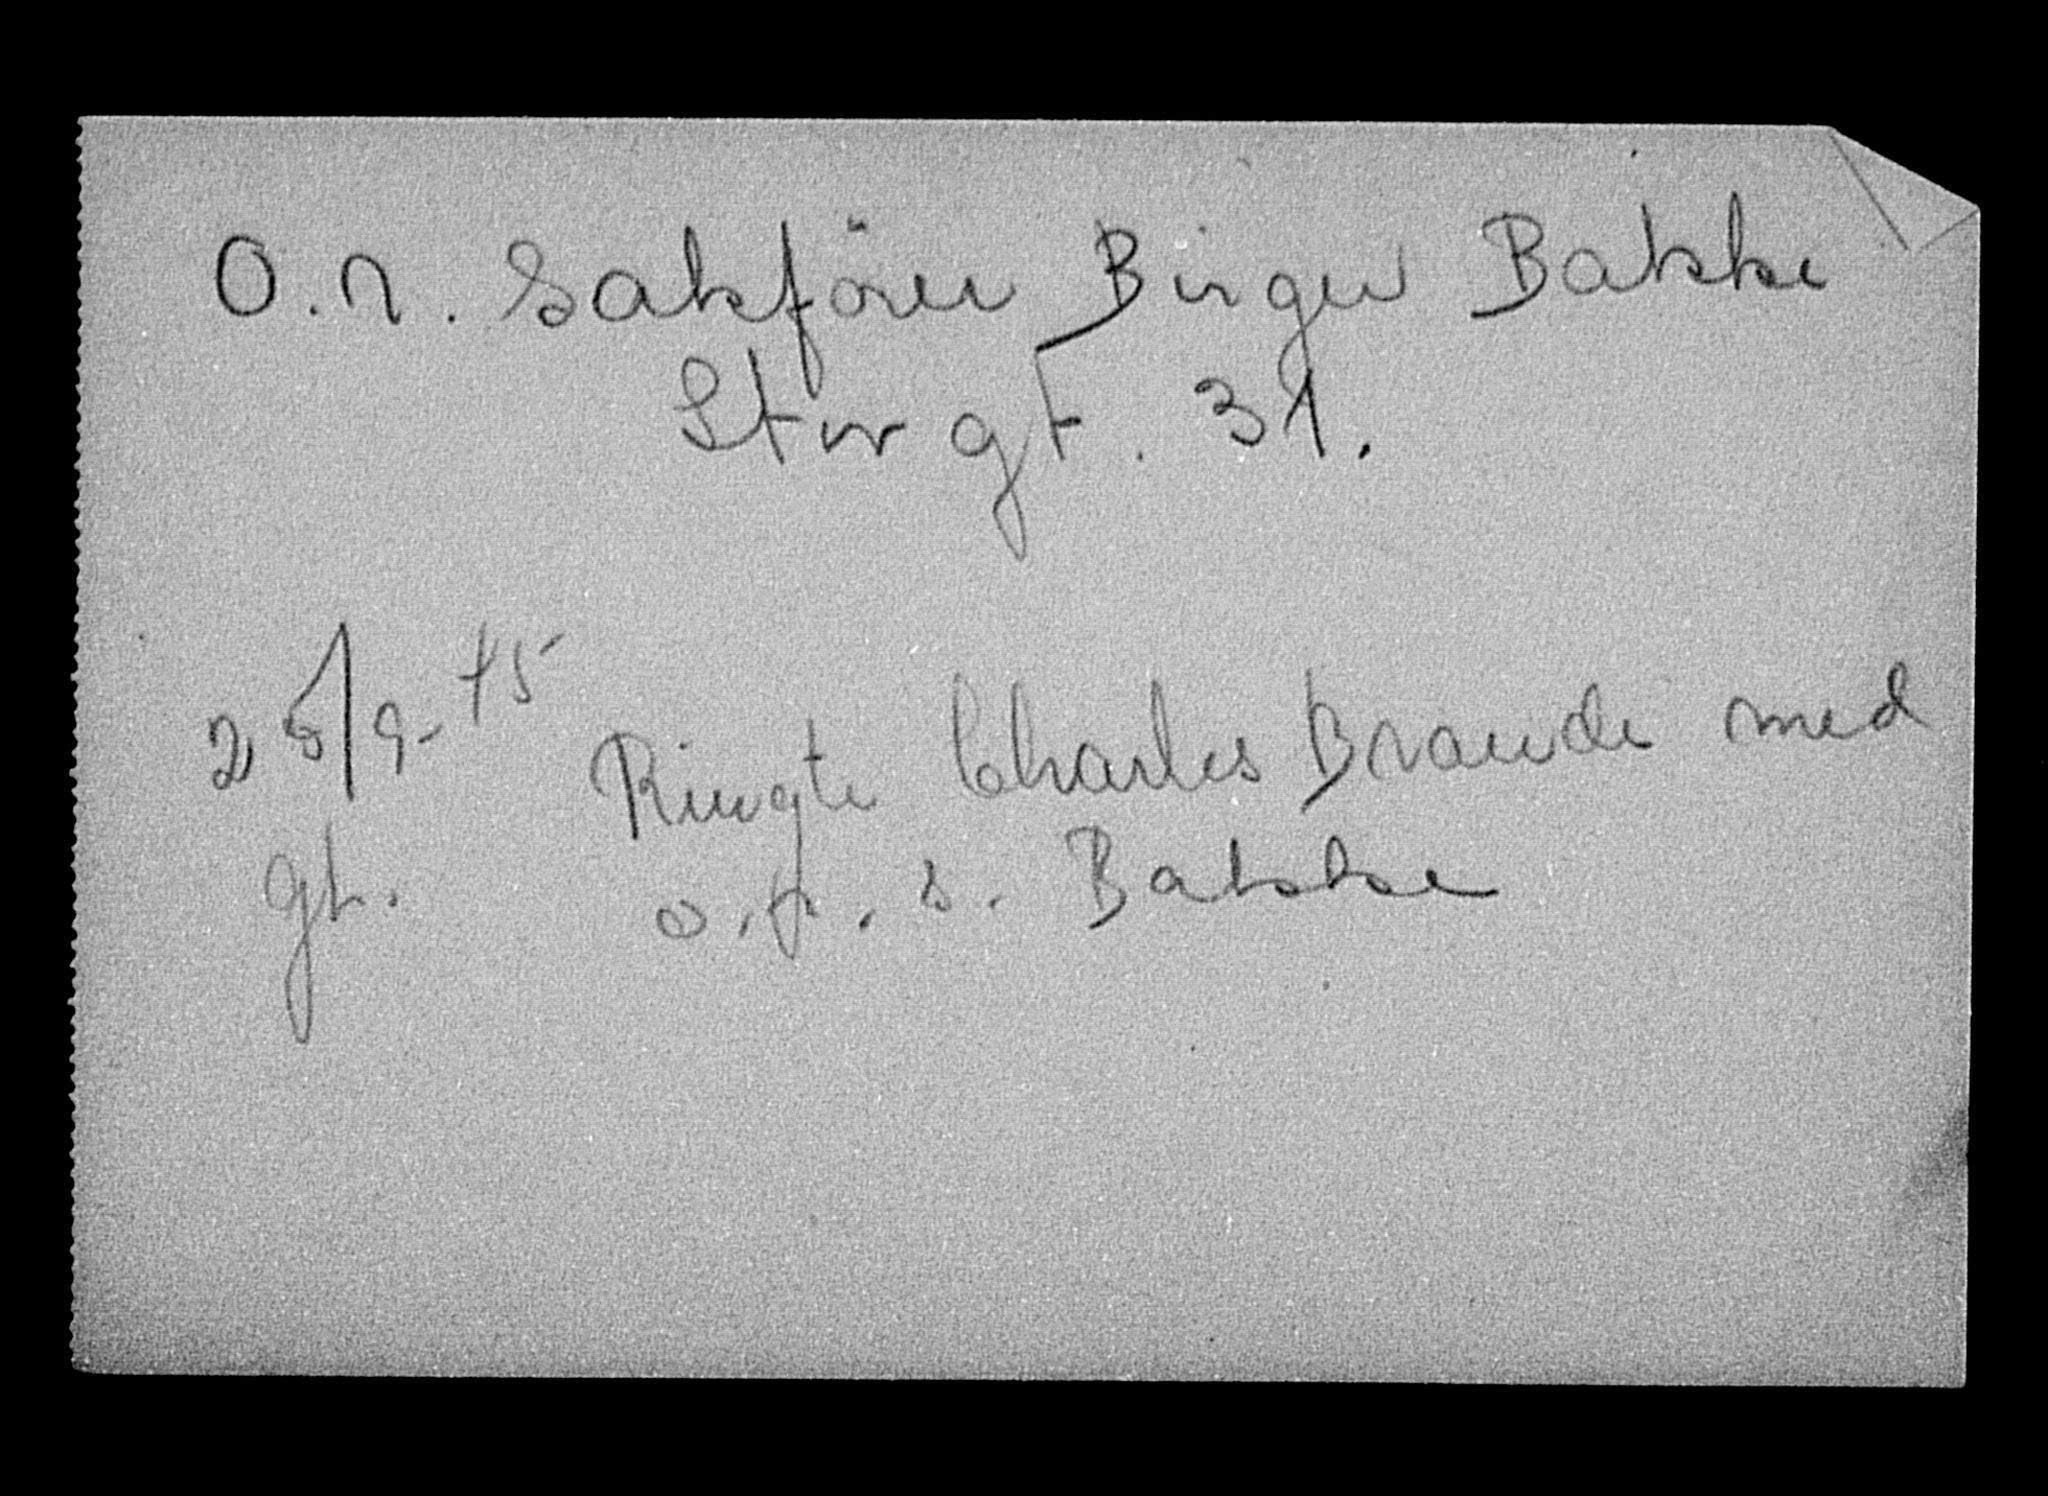 O.r. Sakförer Birger Bakke
Storgt. 31.
25/9-45 Ringte Charles Braude med
gt. o.r.s. Bakke